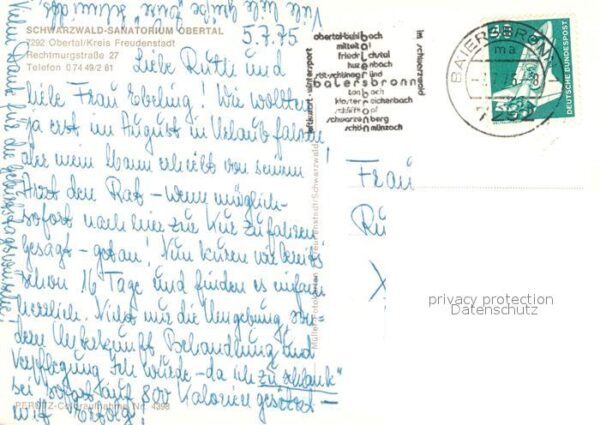 SCHWARZWALD-SANATORIUM OBERTAL
7292 Obertal/Kreis Freudenstadt
Rechtmurgstraße 27
Telefon 0 74 49/2 81
5.7.75
Liebe Ruth und
liebe Frau Ebeling! Wir wollten
ja erst im August in Urlaub fahren,
aber mein Mann erhielt von seinem
Arzt den Rat - wenn möglich -
sofort nach hier zur Kur zu fahren
gesagt - getan! Nun kuren wir bereits
schon 16 Tage und finden es einfach
herrlich. Nicht nur die Umgebung son-
dern Unterkunft Behandlung und
Verpflegung. Ich wurde - da ich "zu schlank"
sei sofort auf 800 Kalorien gesetzt -
mit Erfolg!
Vielen Dank für die Geburtstagswünsche!
Viele liebe Grüße
PERUTZ-Coloraufnahme Nr. 4398
Freudenstadt/Schwarzwald
luftkurort wintersport
im schwarzwald
obertal-buhlbach
mitteltal
friedrichstal
huzenbach
röt-schönegründ
baiersbronn
tonbach
klosterreichenbach
schwarzenberg
schönmünzach
BAIERSBRONN
ma
DEUTSCHE BUNDESPOST
Frau
Ru
privacy protection
Datenschutz